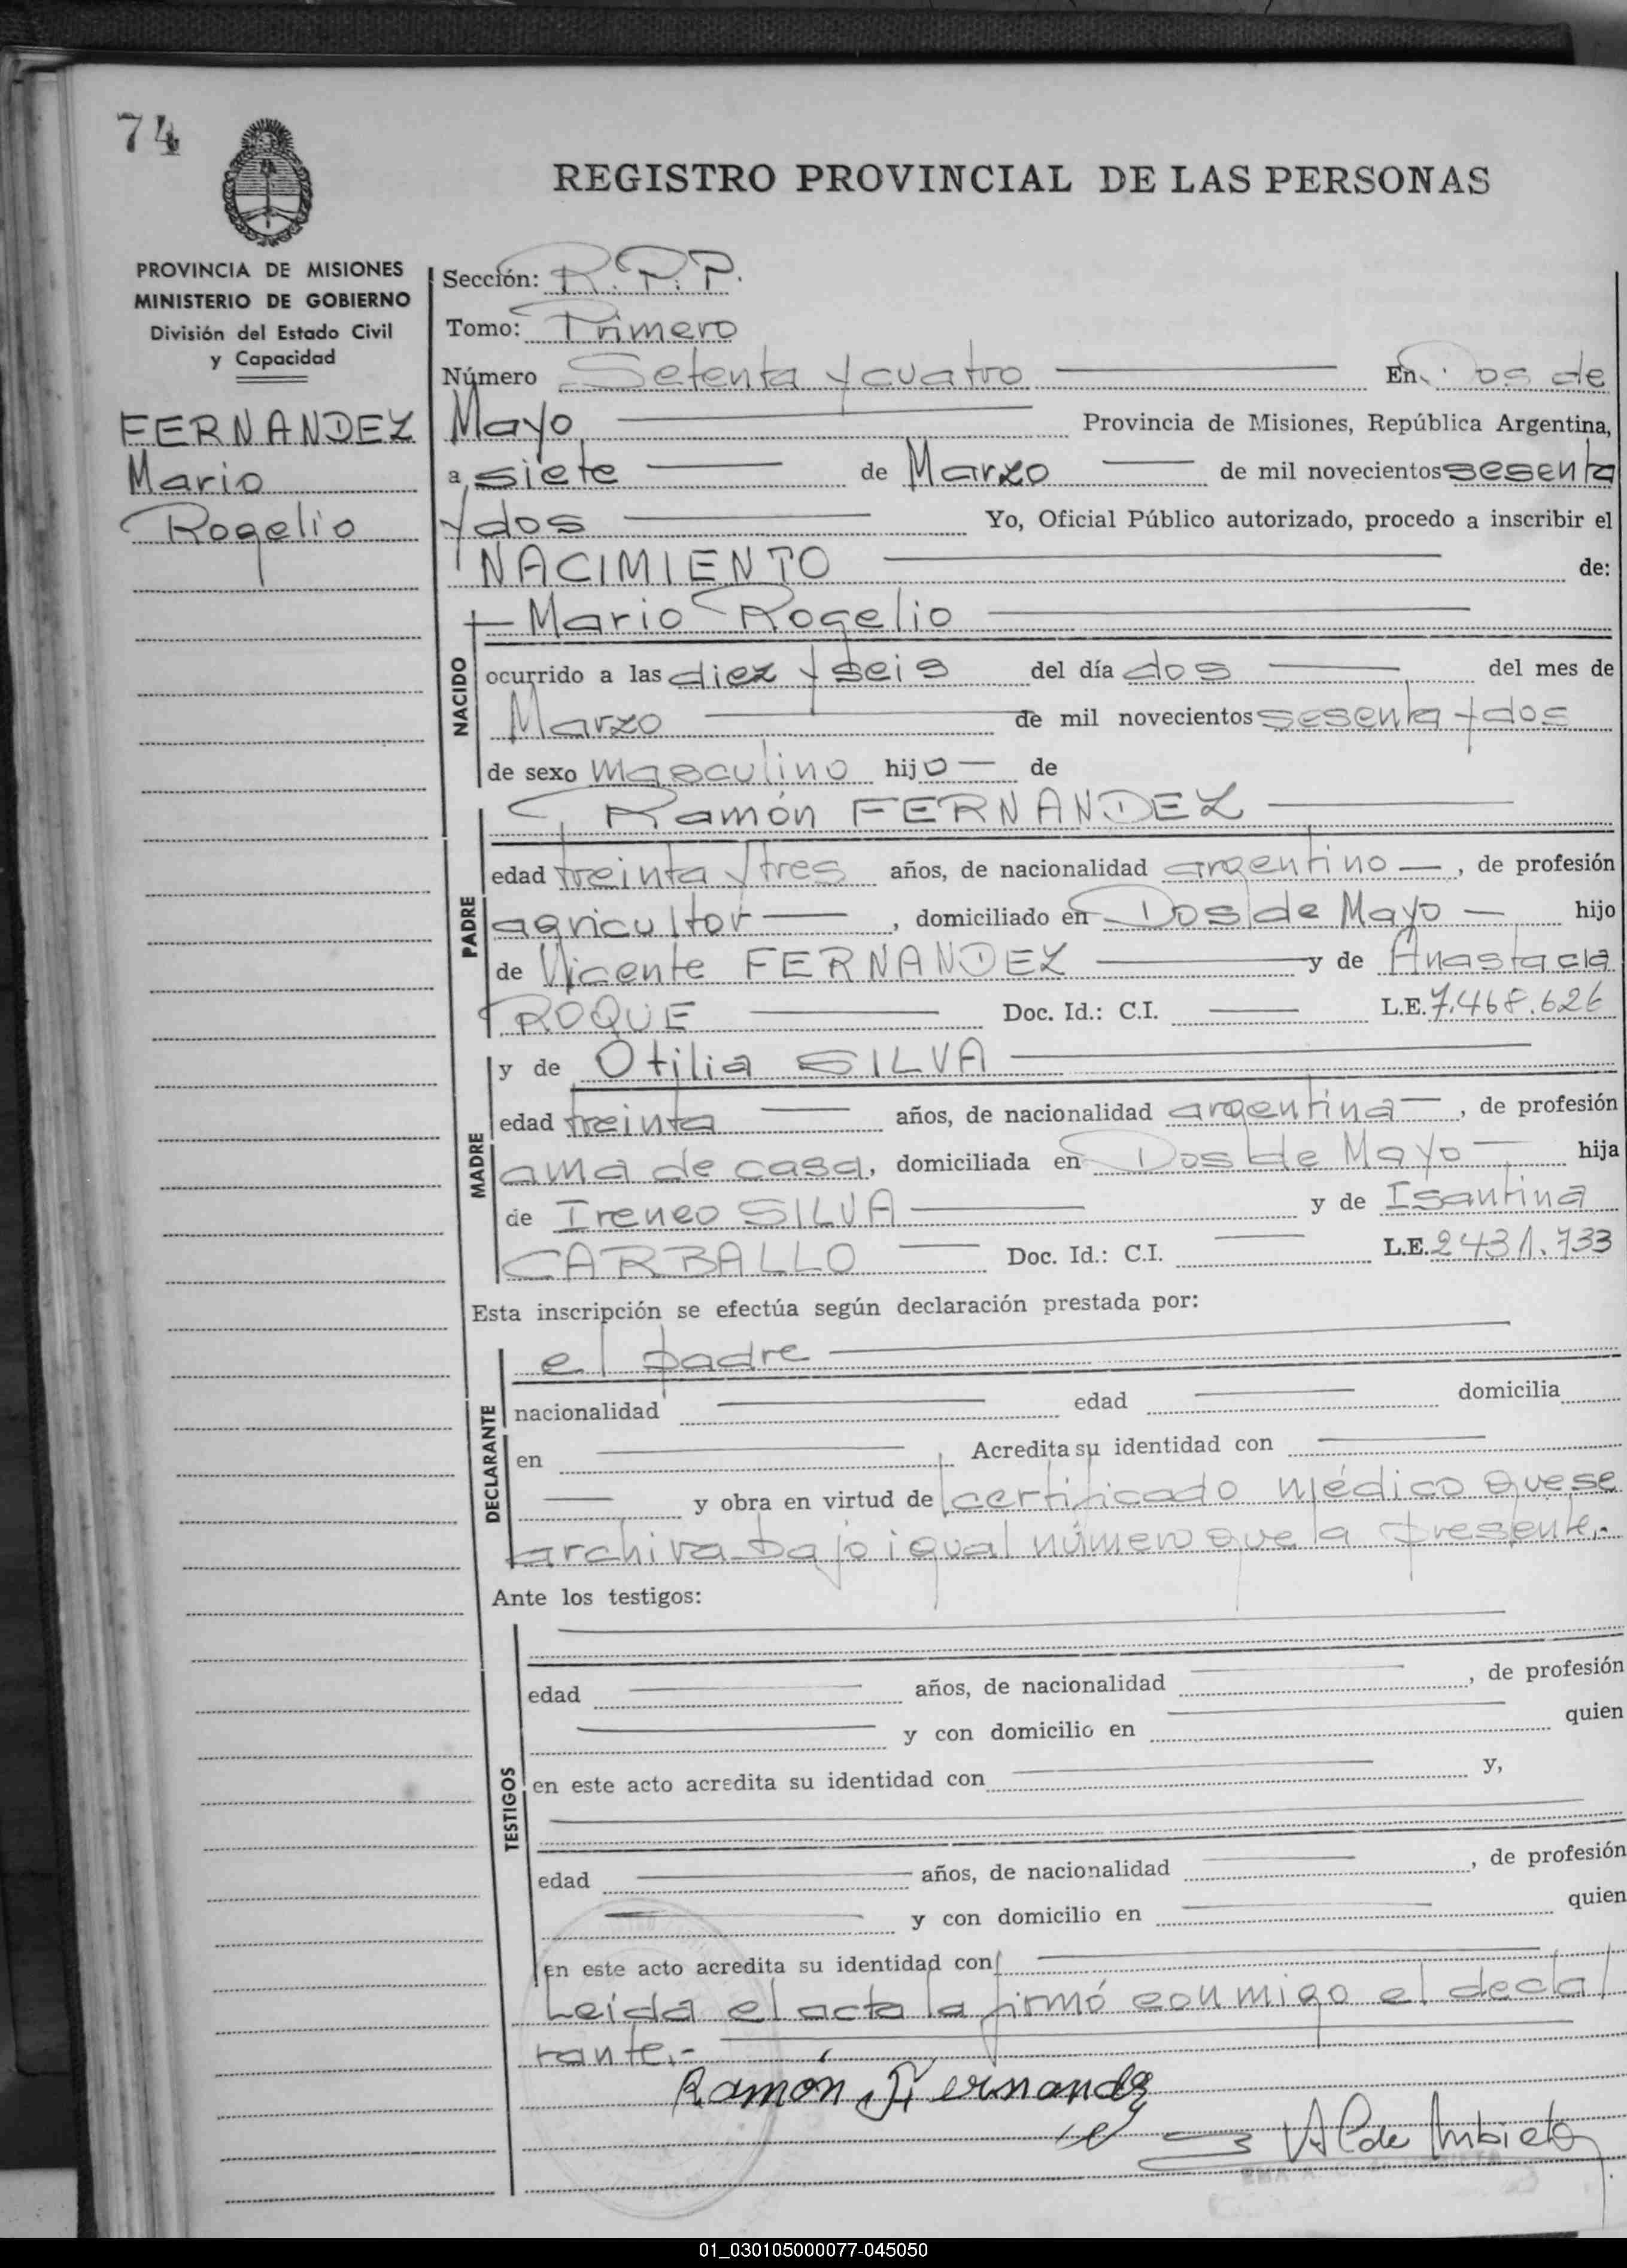 74
REGISTRO PROVINCIAL DE LAS PERSONAS
PROVINCIA DE MISIONES
MINISTERIO DE GOBIERNO
División del Estado Civil
y Capacidad
FERNANDEZ
Mario
Rogelio
Sección: R.P.P.
Tomo: Primero
Número Setenta y cuatro En Dos de
Mayo Provincia de Misiones, República Argentina,
a siete de Marzo de mil novecientos sesenta
y dos Yo, Oficial Público autorizado, procedo a inscribir el
NACIMIENTO de:
Mario Rogelio
NACIDO
ocurrido a las diez y seis del día dos del mes de
Marzo de mil novecientos sesenta y dos
de sexo masculino hijo de
Ramón FERNANDEZ
PADRE
edad treinta y tres años, de nacionalidad argentino, de profesión
agricultor, domiciliado en Dos de Mayo hijo
de Vicente FERNANDEZ y de Anastacia
ROQUE Doc. Id.: C.I. L.E. 7.468.626
y de Otilia SILVA
MADRE
edad treinta años, de nacionalidad argentina, de profesión
ama de casa, domiciliada en Dos de Mayo hija
de Ireneo SILVA y de Isantina
CARBALLO Doc. Id.: C.I. L.E. 2431.733
Esta inscripción se efectúa según declaración prestada por:
el padre
DECLARANTE
nacionalidad edad domicilia
en Acredita su identidad con
y obra en virtud de certificado médico que se
archiva bajo igual número que la presente.-
Ante los testigos:
TESTIGOS
edad años, de nacionalidad , de profesión
y con domicilio en quien
en este acto acredita su identidad con y,
edad años, de nacionalidad , de profesión
y con domicilio en quien
en este acto acredita su identidad con
Leida el acta la firmó conmigo el decla
rante.-
Ramón Fernandez
01_030105000077-045050